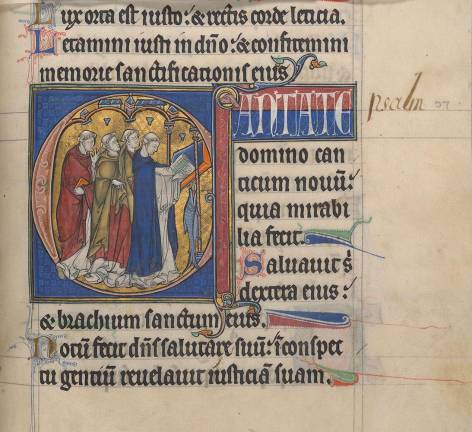 Lux orta est iusto: & rectis corde leticia.
Letamini iusti in dño: & confitemini
memorie sanctificationis eius
CANTATE
domino can
ticum nouũ:
quia mirabi
lia fecit.
Saluauit s̉
dextera eius:
& brachium sanctum eius.
Notũ fecit dñs salutare suũ: ĩ conspec
tu gentiũ reuelauit iusticiã suam.
psalm 97